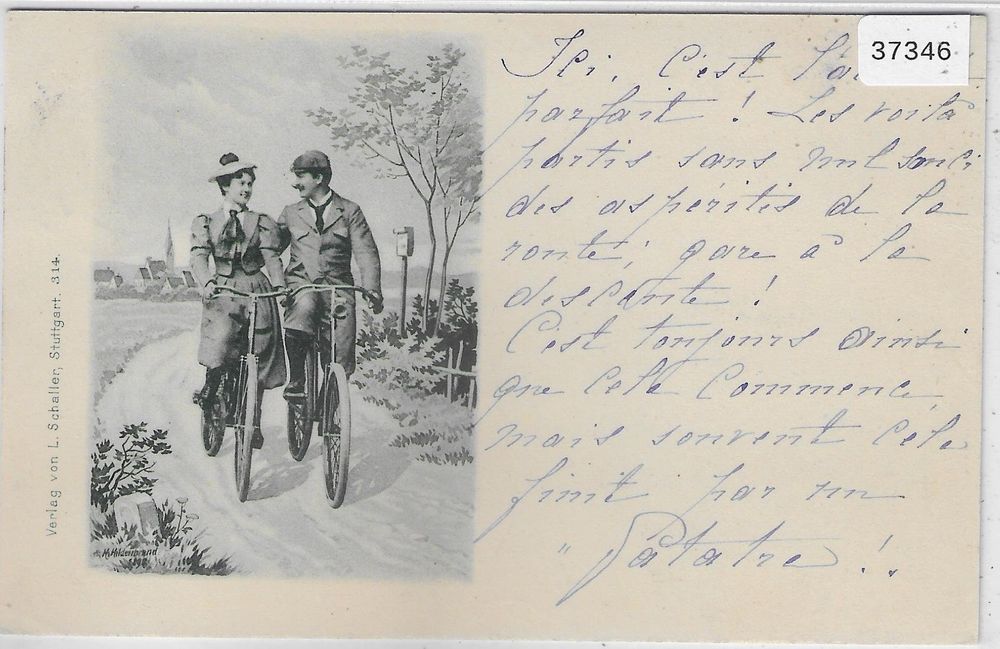 37346
Ici, c'est
parfait ! Les voilà
partis sans nul souci
des aspérités de la
route; gare à la
descente !
C'est toujours ainsi
que cela commence,
mais souvent cela
finit par un
" Patatra !!
Verlag von L. Schaller, Stuttgart. 314.
H. Hildenbrand